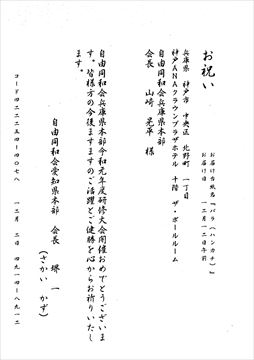 お祝い
お届け台紙名『バラ(ハンカチ)』
お届け日 一二月一二日午前
兵庫県 神戸市 中央区 北野町 一丁目
神戸ANAクラウンプラザホテル 十階 ザ・ボールルーム
自由同和会兵庫県本部
会長 山崎 晃平 様
自由同和会兵庫県本部令和元年度研修大会開催おめでとうございま
す。皆様方の今後ますますのご活躍とご健勝を心からお祈りいたし
ます。
自由同和会愛知県本部 会長 堺 一
(さかい かず)